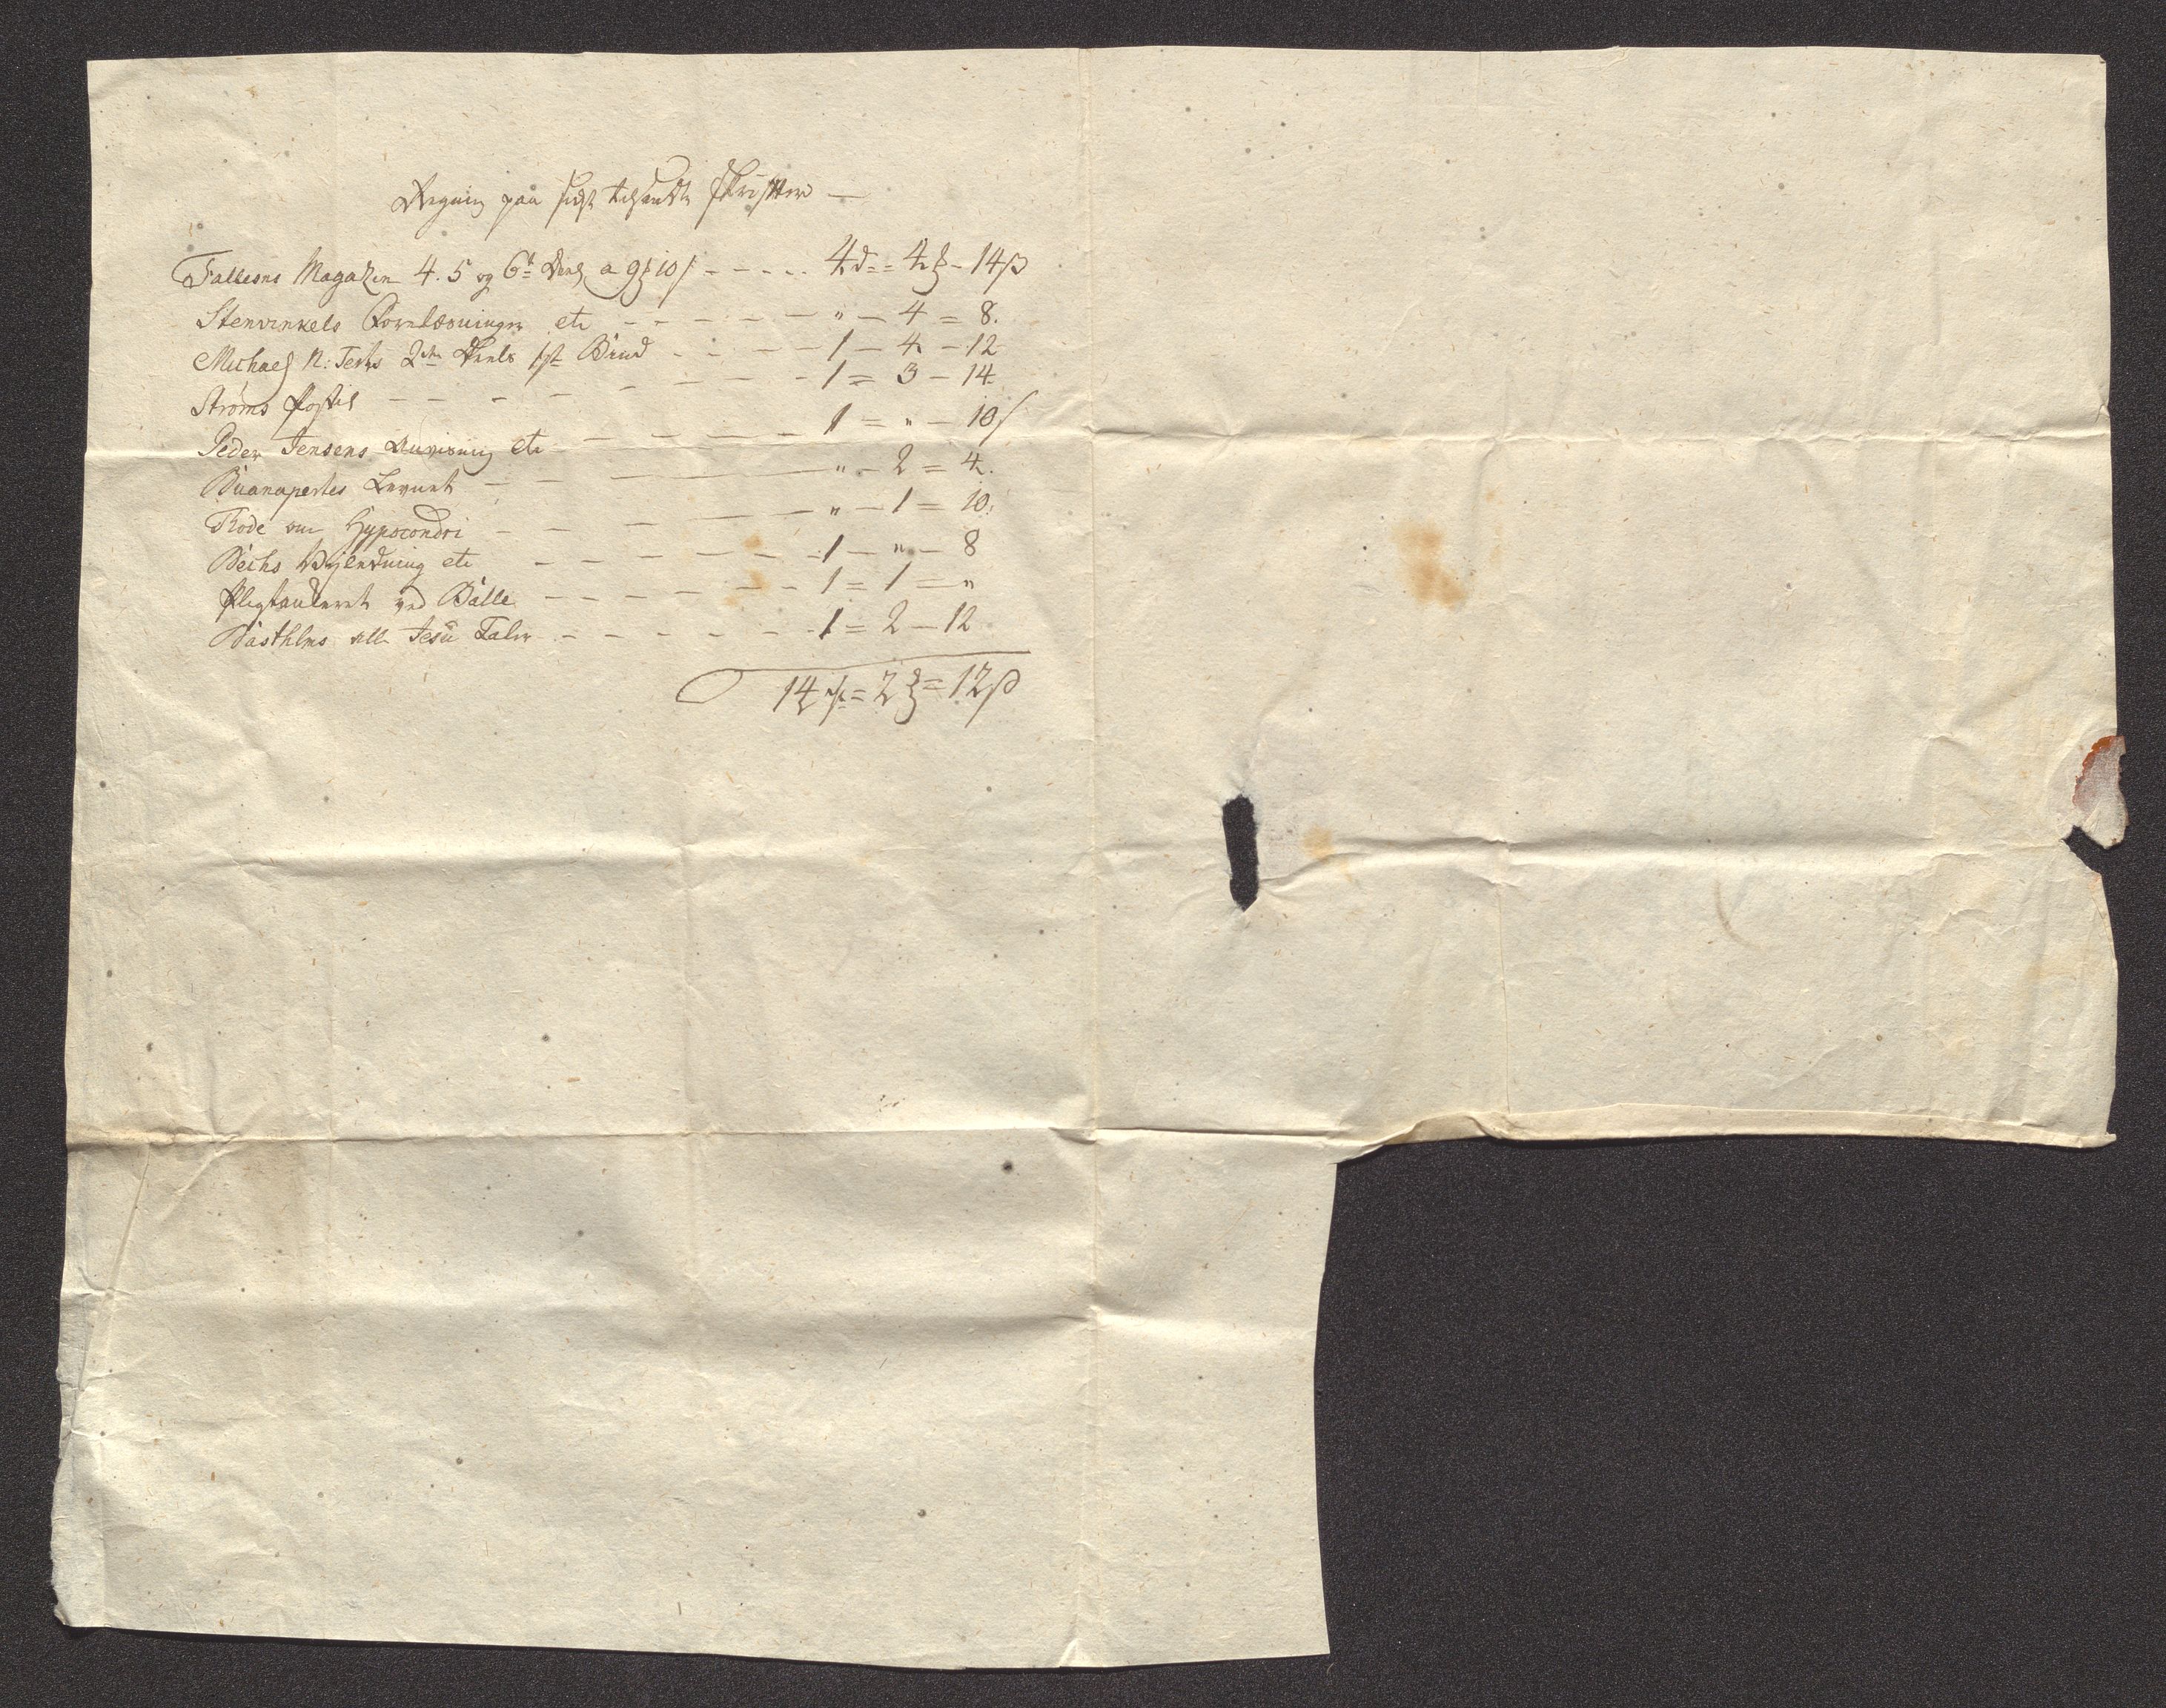 Regning paa sidst tilsendte Skrifter —
Fallesens Magazin 4. 5 og 6te Deel a 9 ƶ 10 s - - - - 4 d = 4 ƶ - 14 ß
Stenvinkels Forelæsninger etc - - - - - - " - 4 = 8.
Michael N: Test 2den Deels 1ste Bind - - - - - 1 - 4 - 12
Strøms Postil - - - - - - - - 1 = 3 - 14
Peder Jensens Anvisning etc - - - - - 1 = " - 10 s
Buanapartes Levnet - - - - - " - 2 = 4.
Tode om Hypocondri - - - - - - " - 1 = 10.
Bechs Vejledning etc - - - - - - 1 - " - 8
Pligtankeret ved Balle - - - - - - - 1 = 1 = "
Basthlms Jesu Taler - - - - - - 1 = 2 - 12
14 = 2 ƶ = 12 ß